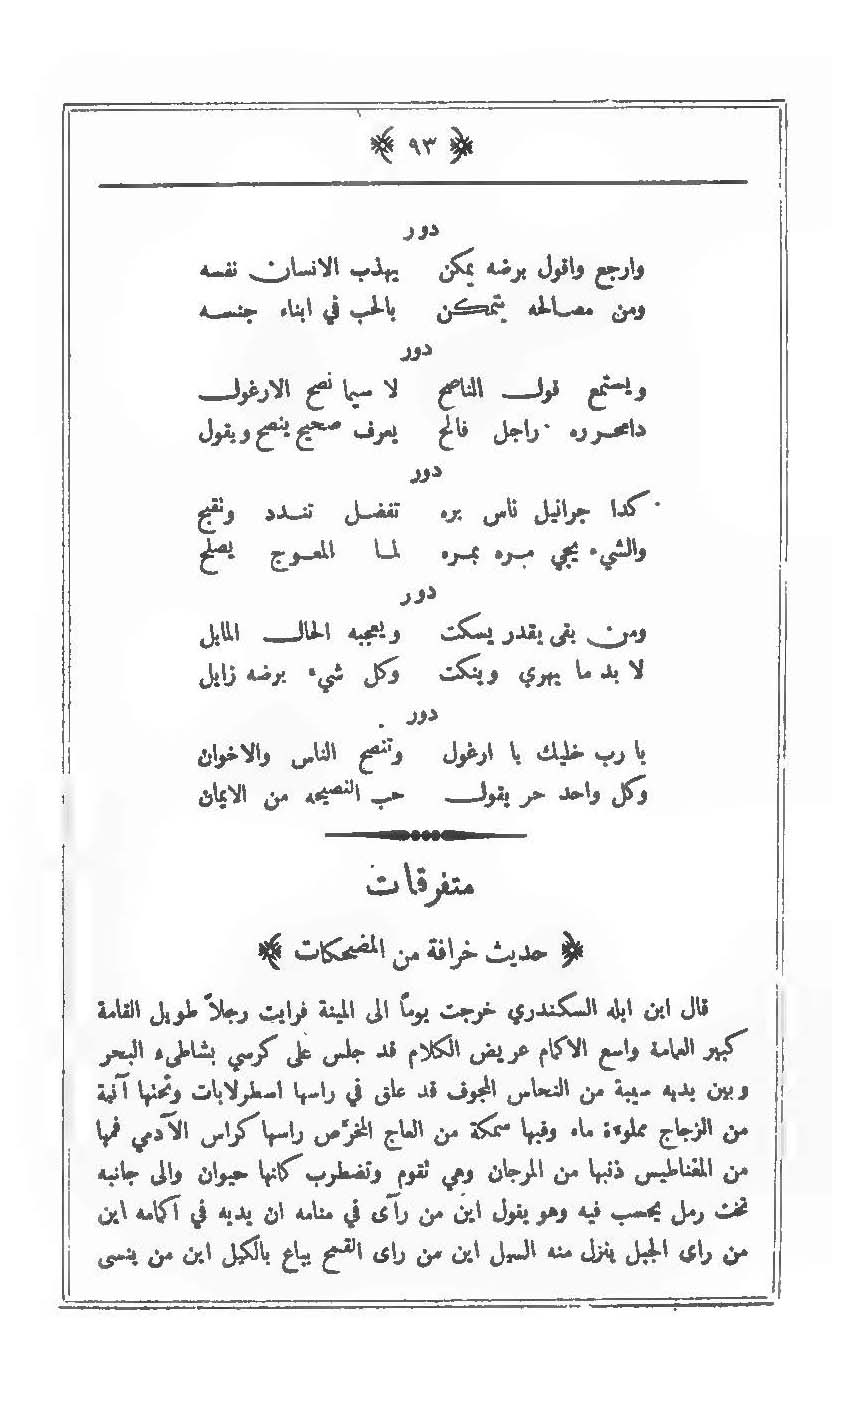 ﴿ ٩٣ ﴾
دور
وارجع واقول برضه يمكن يهذب الانسان نفسه
ومن مصالحه يتمكن بالحب في ابناء جنسه
دور
ويستمع قول الناصح لا سيما نصح الارغول
دامحرره راجل فالح يعرف صحيح ينصح ويقول
دور
كدا جرانيل ناس بره تفضل تندد وتقبح
والشيء يجي مره بمره لما المعوج يصلح
دور
ومن بقى يقدر يسكت ويعجبه الحال المايل
لا بد ما يهري وينكت وكل شيء برضه زايل
دور
يا رب خليك يا ارغول وتنصح الناس والاخوان
وكل واحد حر يقول حب النصيحه من الايمان
متفرقات
﴿ حديث خرافة من المضحكات ﴾
قال ابن ابله السكندري خرجت يوماً الى المينة فرايت رجلاً طويل القامة
كبير العمامة واسع الاكمام عريض الكلام قد جلس على كرسي بشاطىء البحر
وبين يديه سيبة من النحاس المجوف قد علق في راسها اسطرلابات وتحتها آنية
من الزجاج مملوءة ماء وفيها سمكة من العاج المخرّص راسها كراس الآدمي فمها
من المغناطيس ذنبها من المرجان وهي تقوم وتضطرب كانها حيوان والى جانبه
تخت رمل يحسب فيه وهو يقول اين من رآى في منامه ان يديه في اكمامه اين
من راى الجبل ينزل منه السيل اين من راى القمح يباع بالكيل اين من ينسى